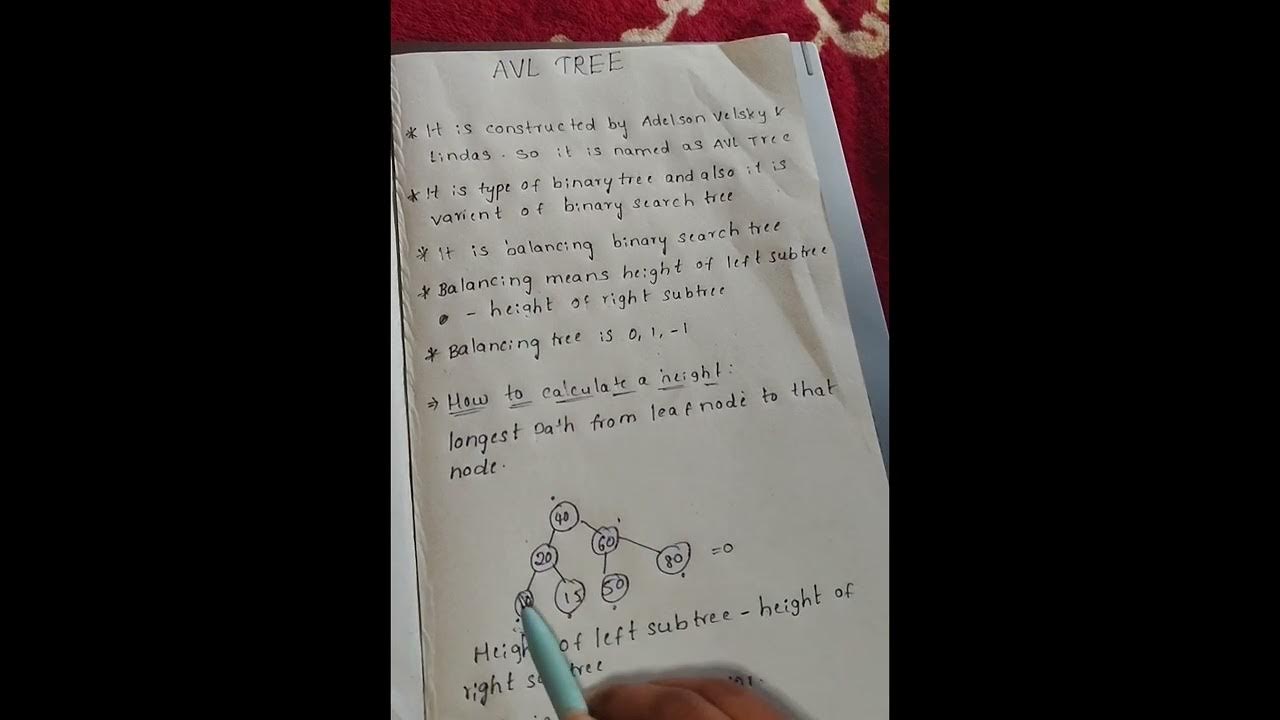 AVL TREE
* It is constructed by Adelson Velsky &
Lindas. So it is named as AVL Tree
* It is type of binary tree and also it is
varient of binary search tree
* It is balancing binary search tree
* Balancing means height of left subtree
- height of right subtree
* Balancing tree is 0, 1, -1
⇒ How to calculate a height:
longest path from leaf node to that
node.
40
20 60 80 =0
10 15 50
Height of left subtree - height of
right subtree